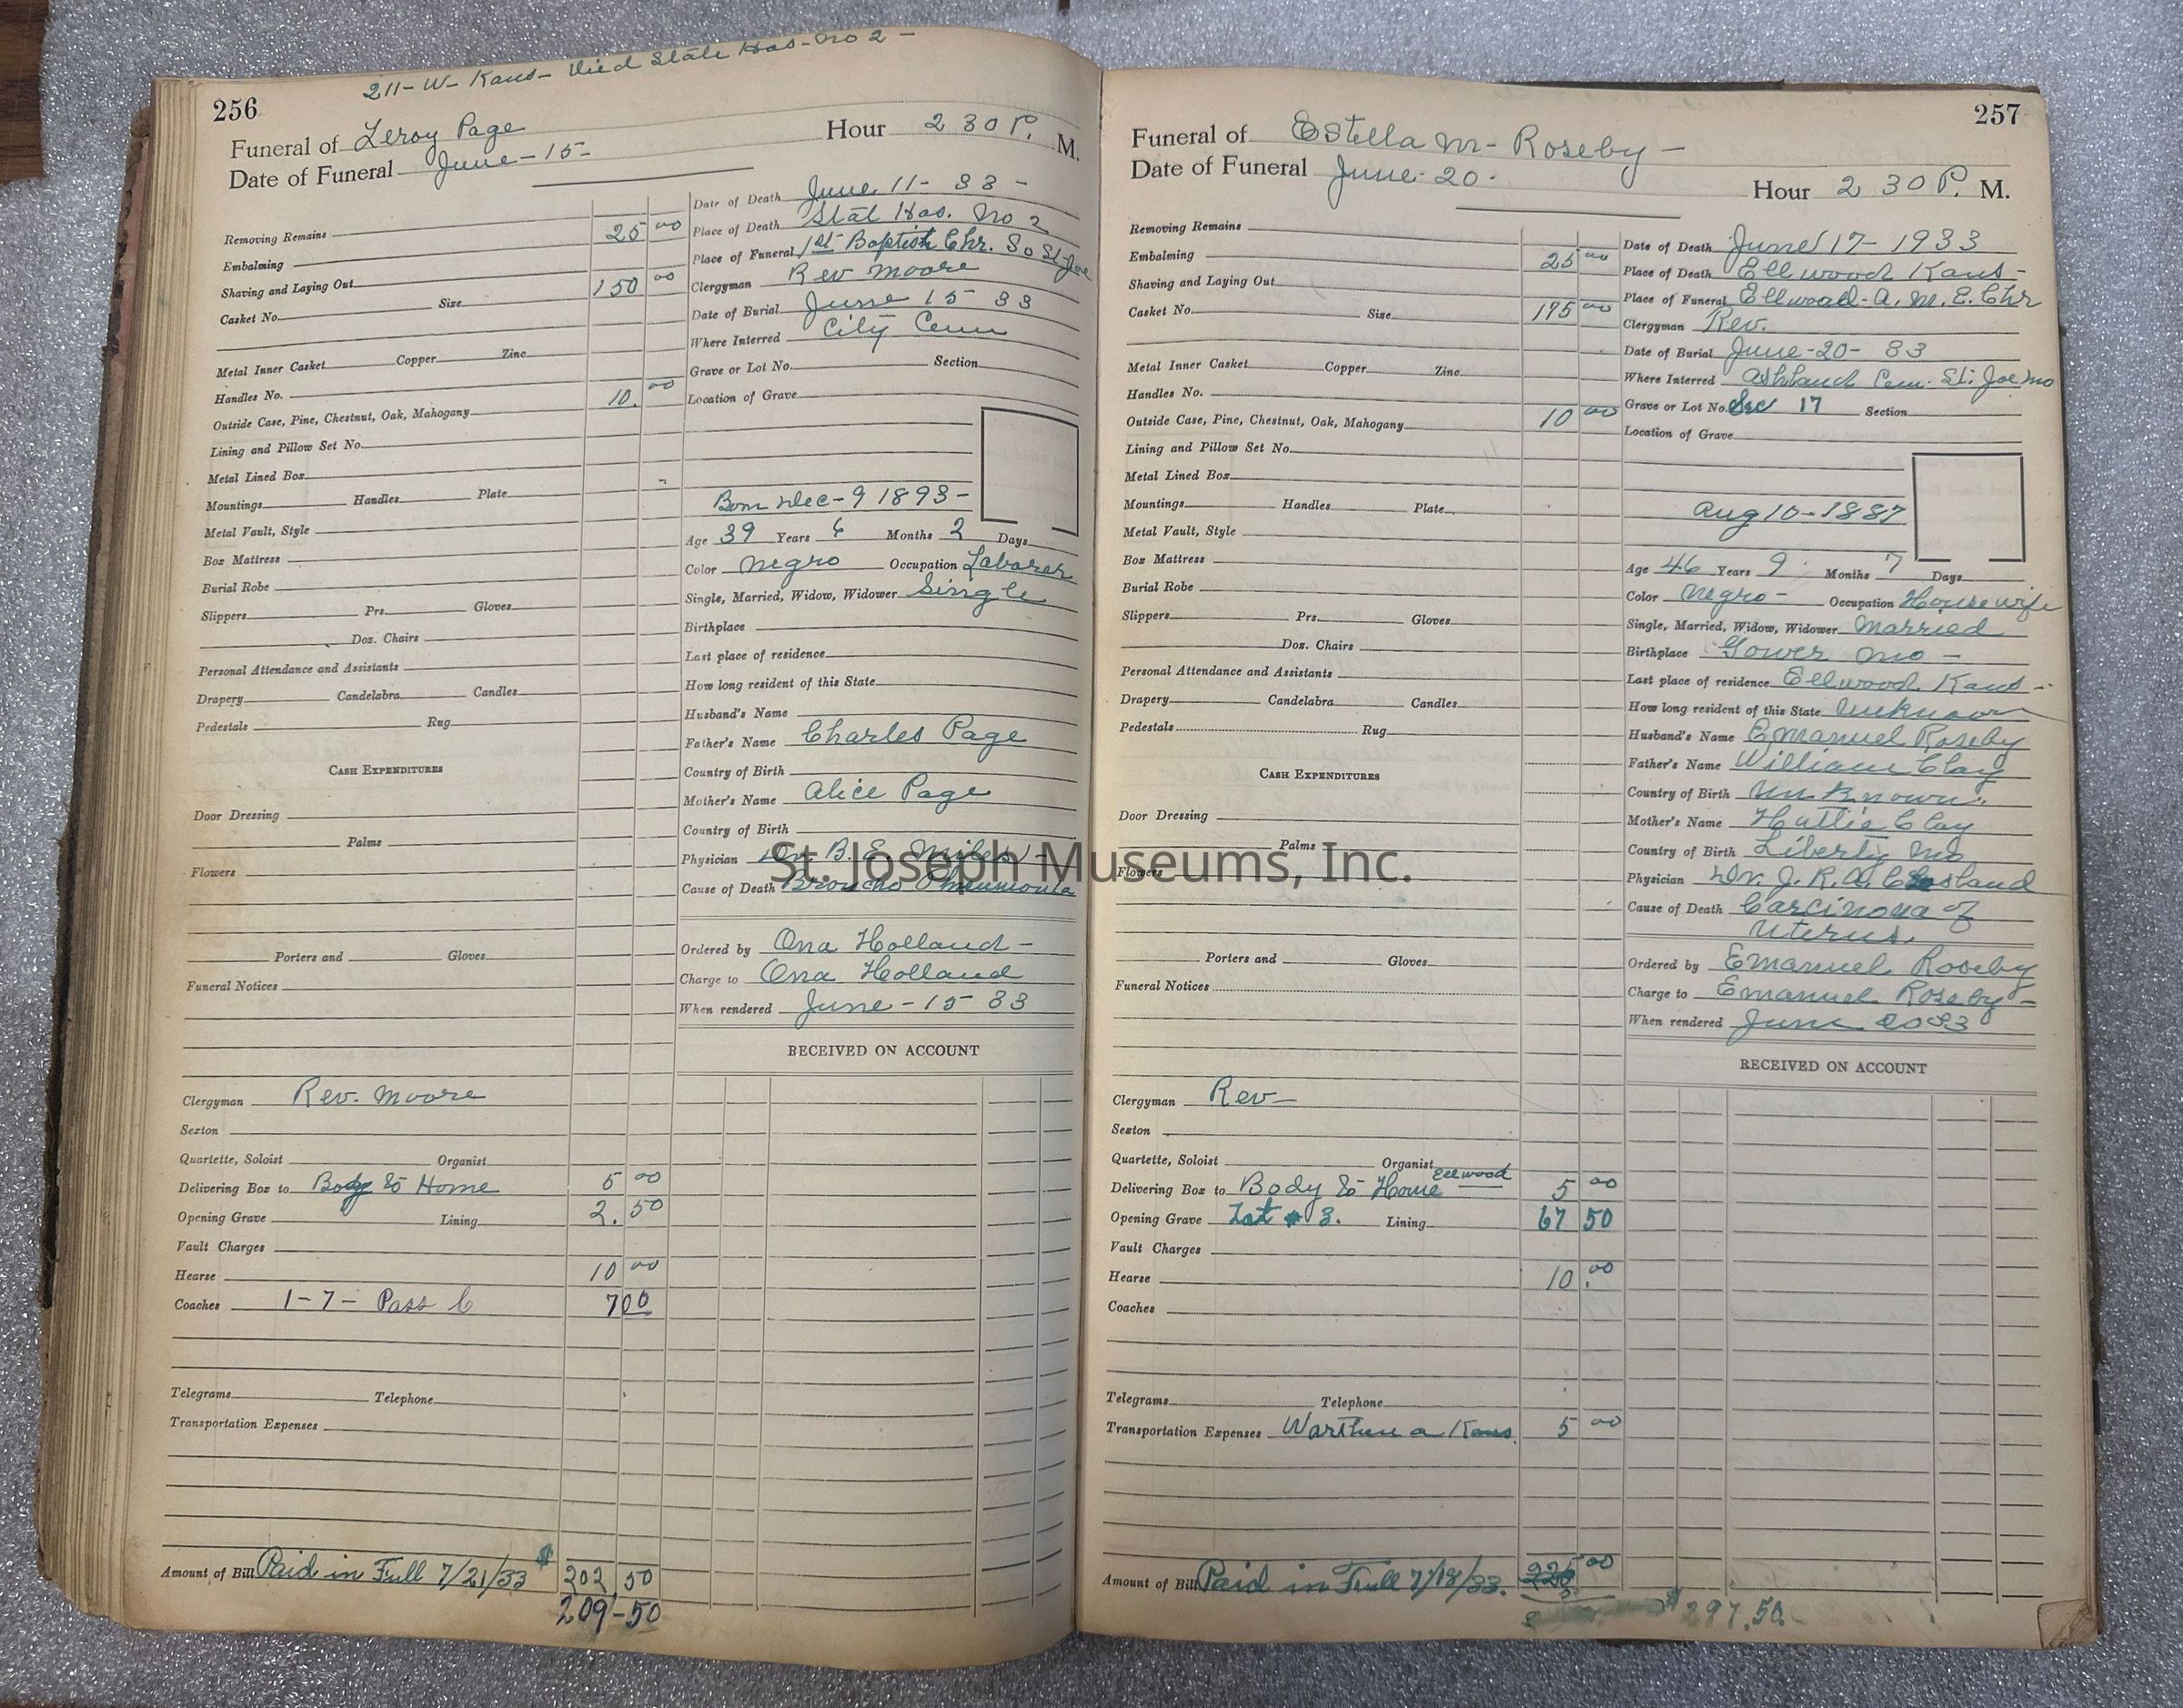 211-W-Kans- Died State Hos-No 2-
256
Funeral of Leroy Page Hour 2 30 P. M.
Date of Funeral June-15-
Removing Remains
Embalming 25 00
Shaving and Laying Out
Casket No. Size 150 00
Metal Inner Casket Copper Zinc
Handles No.
Outside Case, Pine, Chestnut, Oak, Mahogany 10. 00
Lining and Pillow Set No.
Metal Lined Box
Mountings Handles Plate
Metal Vault, Style
Box Mattress
Burial Robe
Slippers Prs. Gloves
Doz. Chairs
Personal Attendance and Assistants
Drapery Candelabra Candles
Pedestals Rug
CASH EXPENDITURES
Door Dressing
Palms
Flowers
Porters and Gloves
Funeral Notices
Clergyman Rev. Moore
Sexton
Quartette, Soloist Organist
Delivering Box to Body to Home 5 00
Opening Grave Lining 2. 50
Vault Charges
Hearse 10 00
Coaches 1-7- Pass C 7 00
Telegrams Telephone
Transportation Expenses
Amount of Bill Paid in Full 7/21/33 $ 202 50
209-50
Date of Death June 11-33-
Place of Death Stat Hos. No 2
Place of Funeral 1st Baptist Chr. So St. Joe
Clergyman Rev Moore
Date of Burial June 15 33
Where Interred City Cem
Grave or Lot No. Section
Location of Grave
Born Dec-9 1893-
Age 39 Years 6 Months 2 Days
Color Negro Occupation Laborer
Single, Married, Widow, Widower Single
Birthplace
Last place of residence
How long resident of this State
Husband's Name
Father's Name Charles Page
Country of Birth
Mother's Name Alice Page
Country of Birth
Physician Dr. B. E. Miles-
Cause of Death Broncho Pneumonia
Ordered by Ona Holland-
Charge to Ona Holland
When rendered June-15-33
RECEIVED ON ACCOUNT
St. Joseph Museums, Inc.
257
Funeral of Estella M- Roseby-
Date of Funeral June-20- Hour 2 30 P. M.
Removing Remains
Embalming 25 00
Shaving and Laying Out
Casket No. Size 175 00
Metal Inner Casket Copper Zinc
Handles No.
Outside Case, Pine, Chestnut, Oak, Mahogany 10 00
Lining and Pillow Set No.
Metal Lined Box
Mountings Handles Plate
Metal Vault, Style
Box Mattress
Burial Robe
Slippers Prs. Gloves
Doz. Chairs
Personal Attendance and Assistants
Drapery Candelabra Candles
Pedestals Rug
CASH EXPENDITURES
Door Dressing
Palms
Flowers
Porters and Gloves
Funeral Notices
Clergyman Rev-
Sexton
Quartette, Soloist Organist
Delivering Box to Body to Home Ellwood 5 00
Opening Grave Lot # 3. Lining 67 50
Vault Charges
Hearse 10.00
Coaches
Telegrams Telephone
Transportation Expenses Warthena Kans. 5 00
Amount of Bill Paid in Full 7/18/33. 225 00
$297.50
Date of Death June 17-1933
Place of Death Ellwood Kans-
Place of Funeral Ellwood-A.M.E. Chr
Clergyman Rev.
Date of Burial June-20-33
Where Interred Ashland Cem. St. Joe Mo
Grave or Lot No. Sec 17 Section
Location of Grave
Aug 10-1887
Age 46 Years 9 Months 7 Days
Color Negro- Occupation Housewife
Single, Married, Widow, Widower Married
Birthplace Gower Mo-
Last place of residence Ellwood Kans-
How long resident of this State Unknown
Husband's Name Emanuel Roseby
Father's Name William Clay
Country of Birth Unknown.
Mother's Name Hattie Clay
Country of Birth Liberty Mo
Physician Dr. J. R. A.
Cause of Death Carcinoma of
Uterus.
Ordered by Emanuel Roseby
Charge to Emanuel Roseby-
When rendered June 20 33
RECEIVED ON ACCOUNT